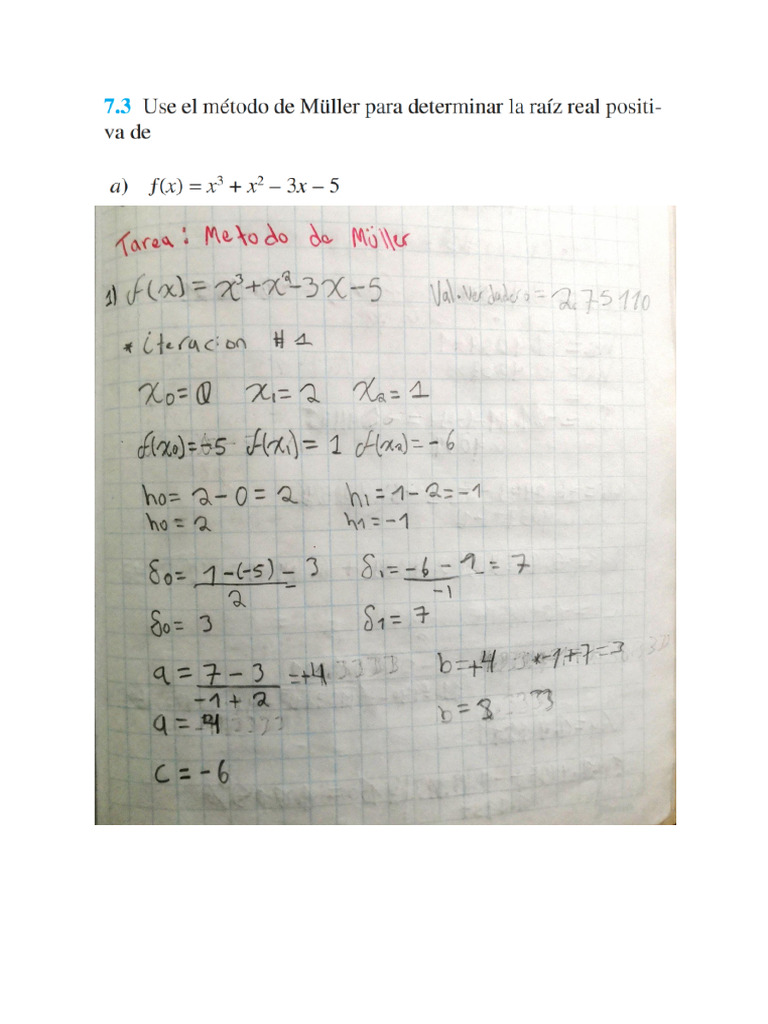 7.3 Use el método de Müller para determinar la raíz real positi-
va de
a) f(x) = x³ + x² – 3x – 5
Tarea: Metodo de Müller
1) f(x) = x³+x²-3x-5 Val.Verdadero = 2.75110
* iteracion #1
x₀=0 x₁=2 x₂=1
f(x₀)=-5 f(x₁)=1 f(x₂)=-6
h₀= 2-0=2 h₁=1-2=-1
h₀=2 h1=-1
δ₀= 1-(-5) = 3 δ₁= -6-1 = 7
2 -1
δ₀= 3 δ1= 7
a = 7-3 =+4 b=+4 *-1+7=3
-1+2 b=
a = 4
c = -6